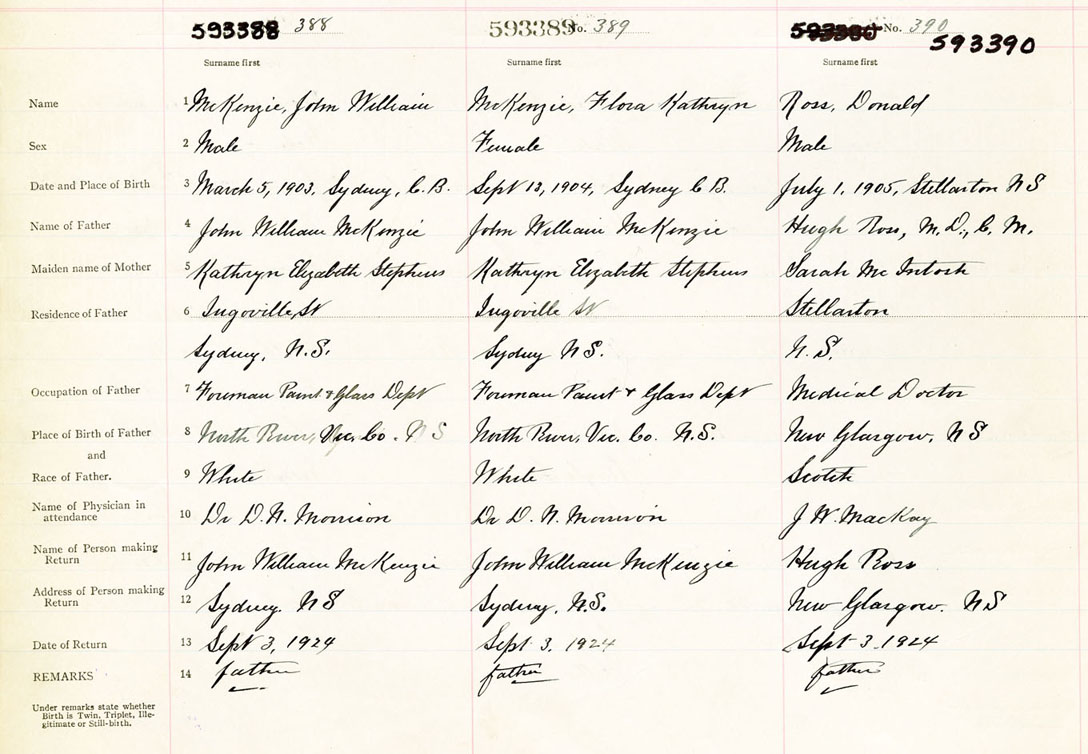 593388 388 593389 No. 389 593390 No. 390 593390
Surname first Surname first Surname first
Name 1 McKenzie, John William McKenzie, Flora Kathryn Ross, Donald
Sex 2 Male Female Male
Date and Place of Birth 3 March 5, 1903, Sydney, C.B. Sept 13, 1904, Sydney C B. July 1, 1905, Stellarton N S
Name of Father 4 John William McKenzie John William McKenzie Hugh Ross, M.D., C.M.
Maiden name of Mother 5 Kathryn Elizabeth Stephens Kathryn Elizabeth Stephens Sarah McIntosh
Residence of Father 6 Ingoville, St Ingoville St Stellarton
Sydney, N.S. Sydney N S. N.S.
Occupation of Father 7 Foreman Paint & Glass Dept Foreman Paint & Glass Dept Medical Doctor
Place of Birth of Father 8 North River, Vic. Co. N S North River, Vic. Co. N.S. New Glasgow, N S
and
Race of Father. 9 White White Scotch
Name of Physician in
attendance 10 Dr D. N. Morrison Dr D. N. Morrison J W. MacKay
Name of Person making
Return 11 John William McKenzie John William McKenzie Hugh Ross
Address of Person making
Return 12 Sydney. N S Sydney, N.S. New Glasgow. N S
Date of Return 13 Sept 3, 1924 Sept 3, 1924 Sept 3. 1924
REMARKS 14 father father father
Under remarks state whether
Birth is Twin, Triplet, Ille-
gitimate or Still-birth.